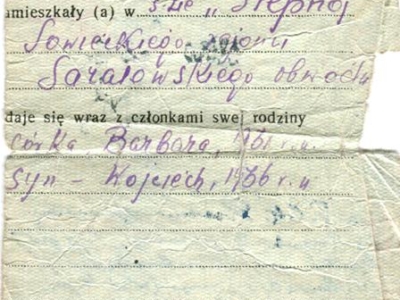 amieszkały (a) w sıe „Stepnoj
Sowieckiego rajonu
Saratowskiego obwodu
daje się wraz z członkami swej rodziny
córka Barbara,
syn – Wojciech, r.u